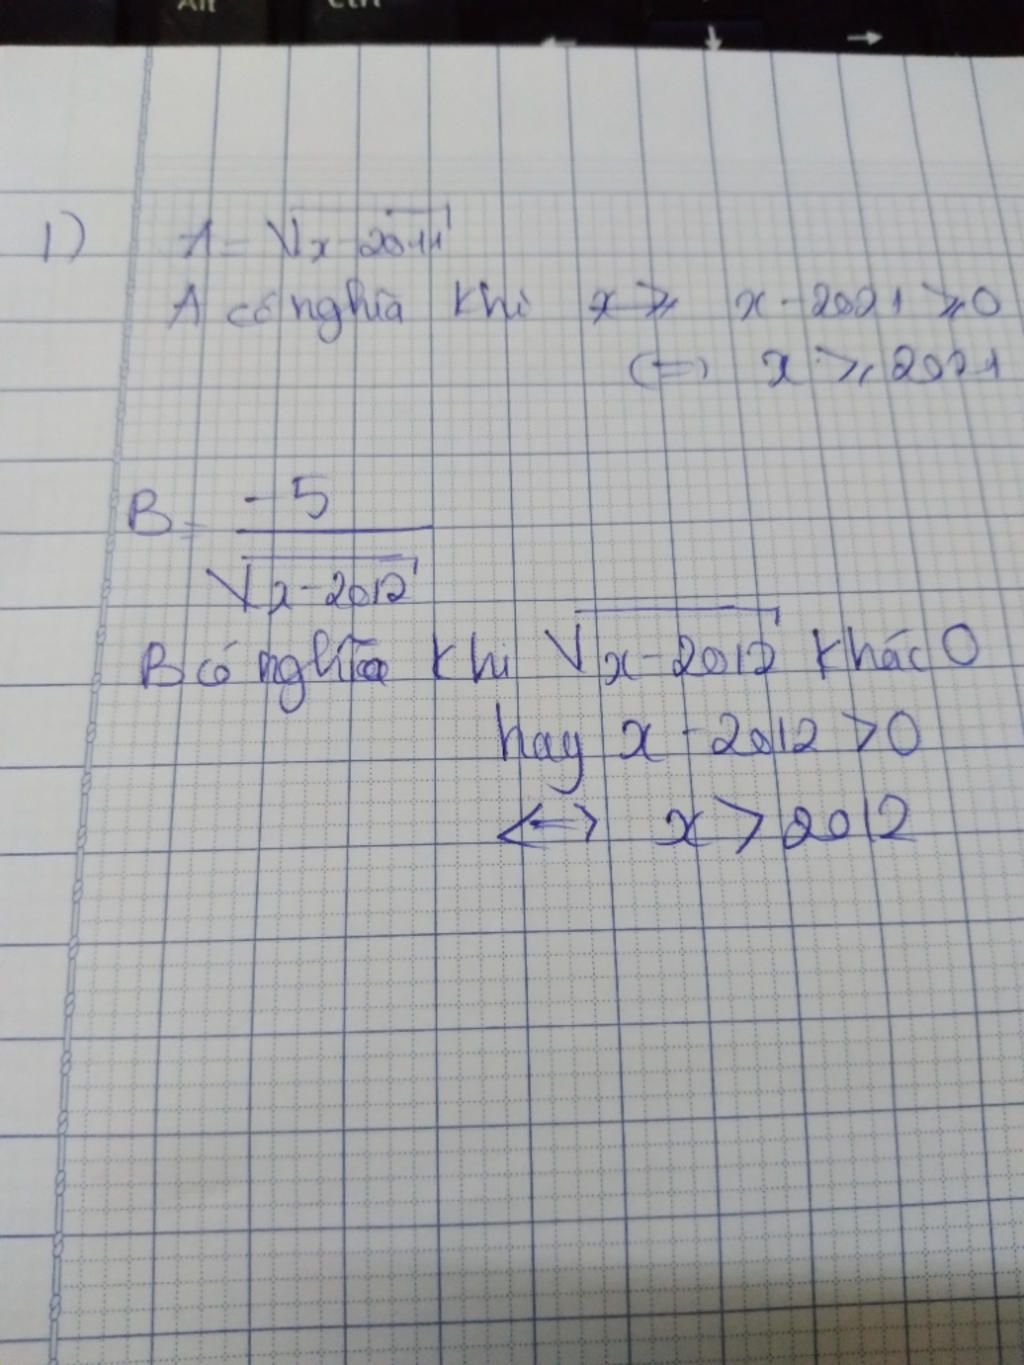 Alt Ctrl
1) A = √x-2011
A có nghĩa khi x ≥ x - 2021 ≥ 0
<=> x ≥ 2021
B = -5
√x-2012
B có nghĩa khi √x-2012 khác 0
hay x - 2012 > 0
<=> x > 2012